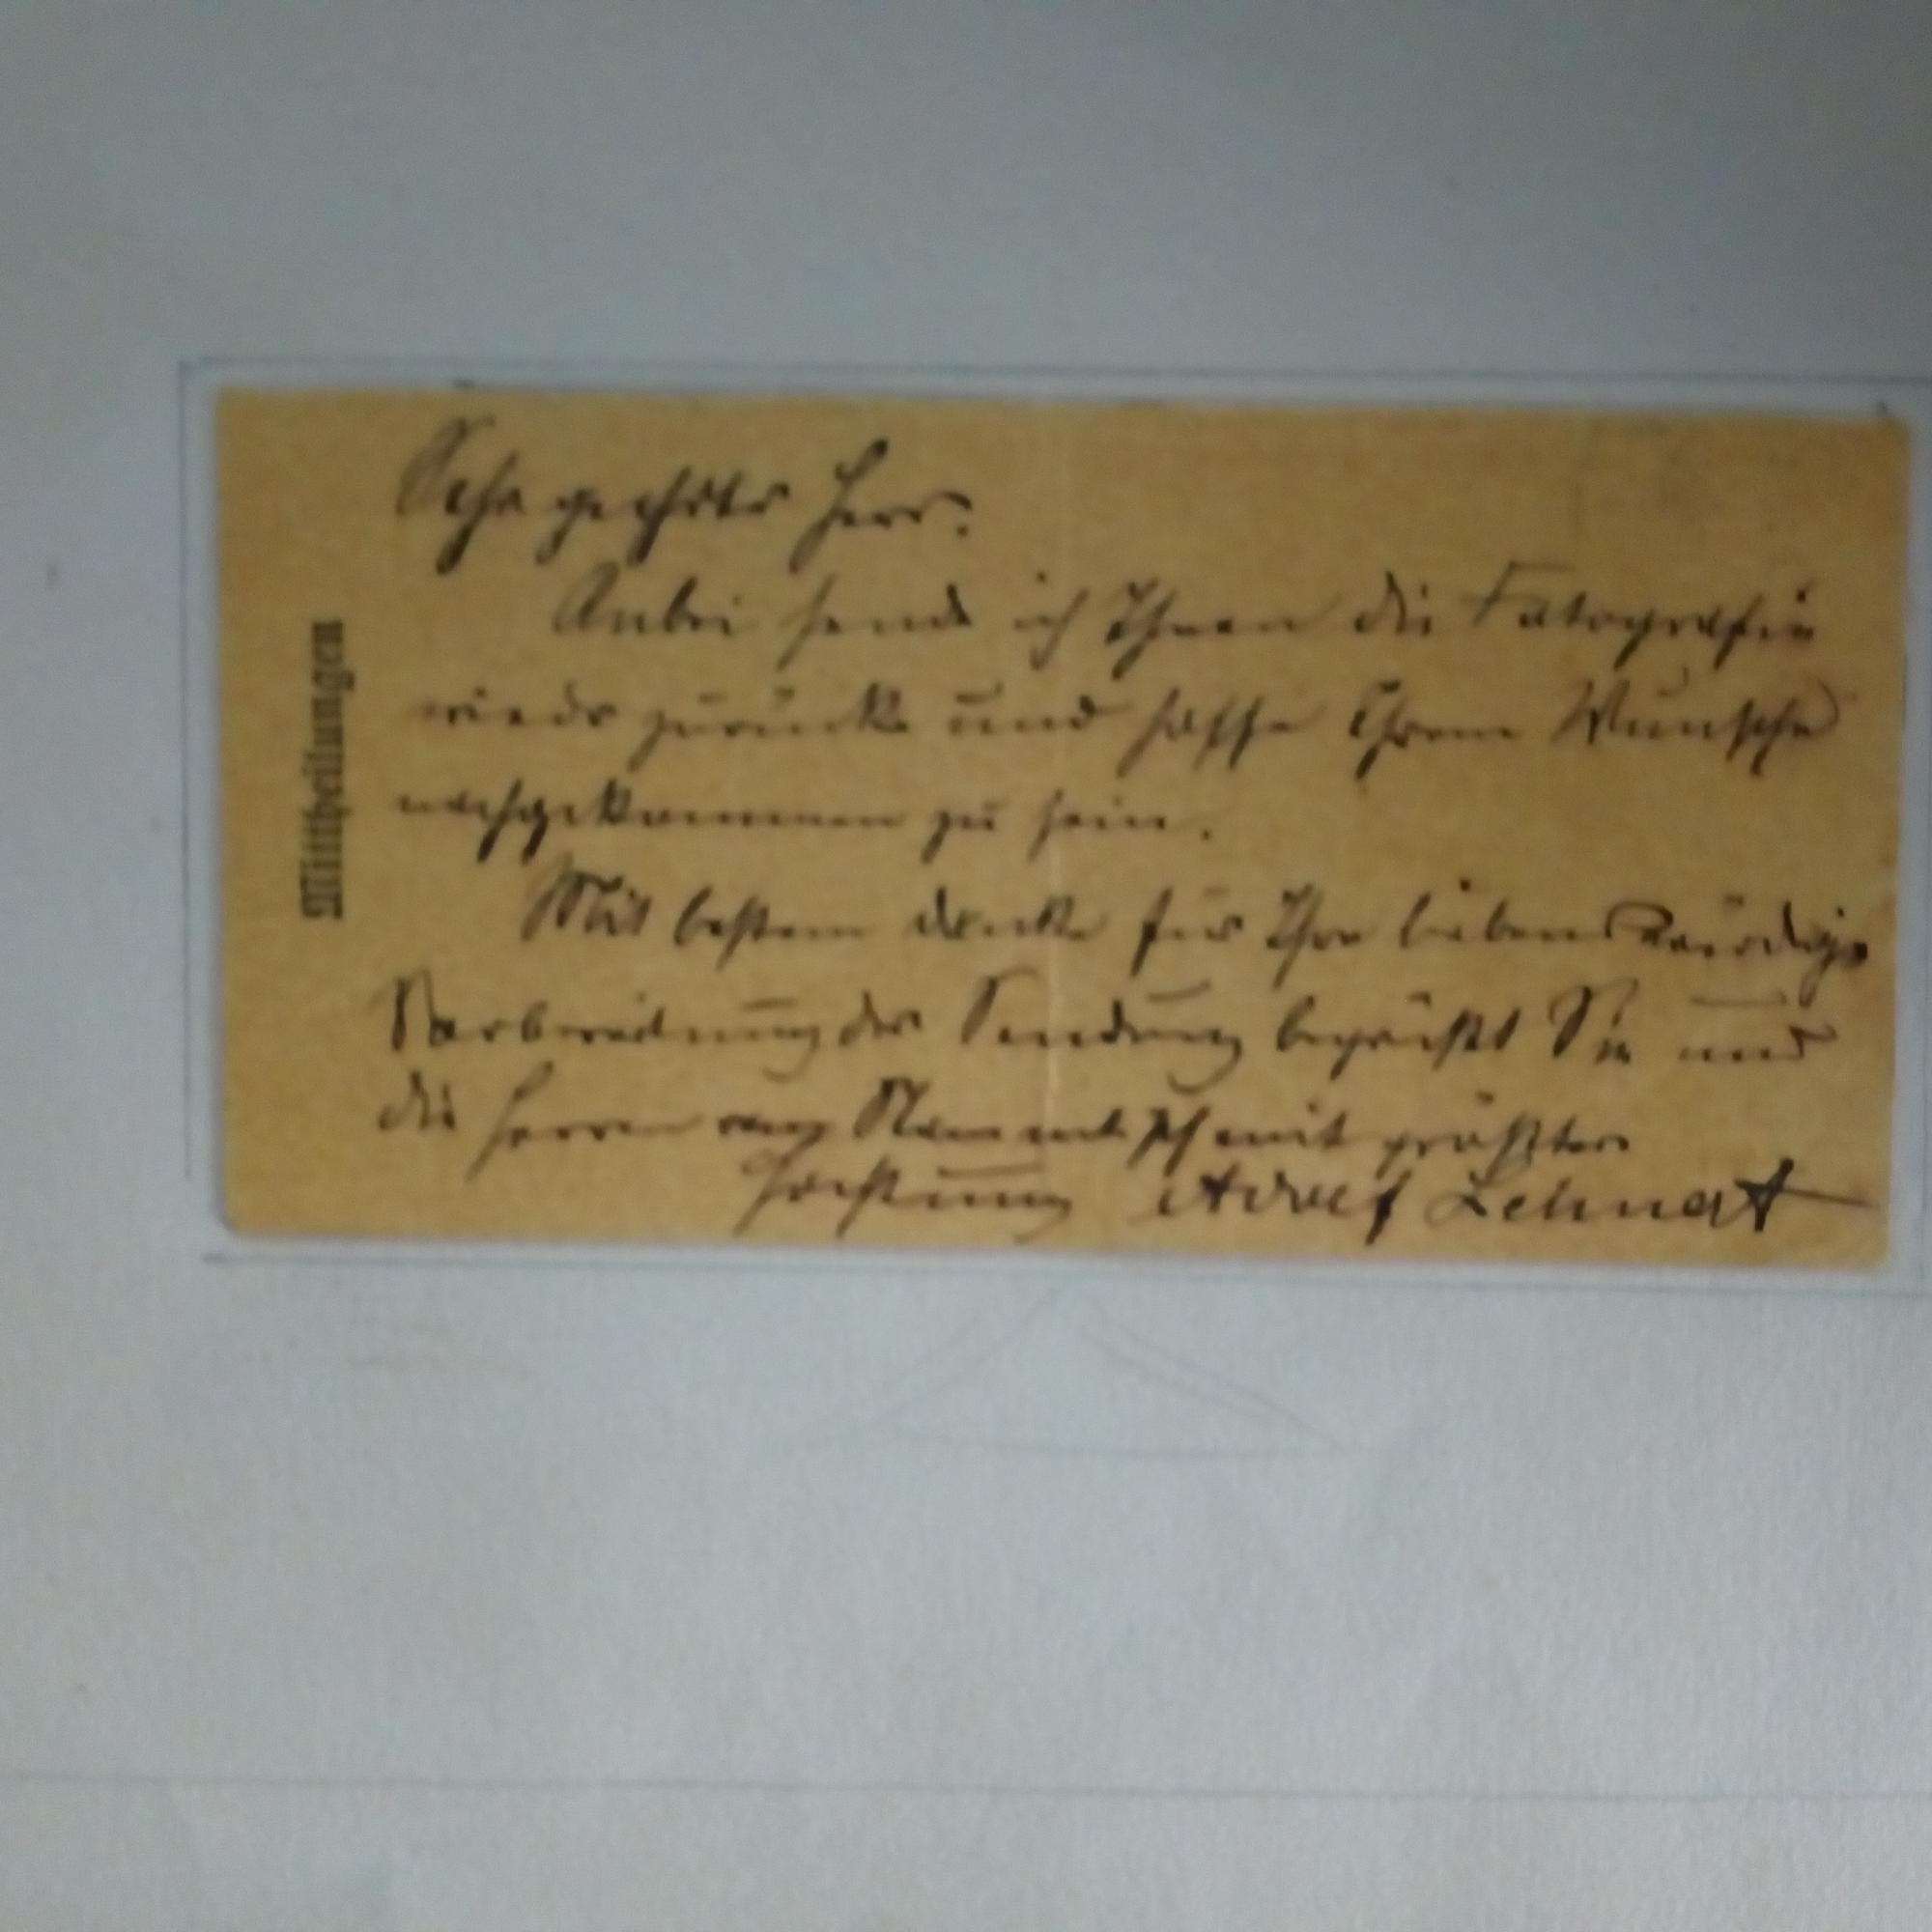 Mittheilungen
Sehr geehrter Herr!
Anbei sende ich Ihnen die Fotografie
wieder zurück und hoffe Ihrem Wunsche
nachgekommen zu sein.
Mit bestem Danke für Ihre liebenswürdige
Vorbereitung der Sendung begrüßt Sie und
die Herren vom Stammtisch mit größter
Hochachtung Adolf Lehnert